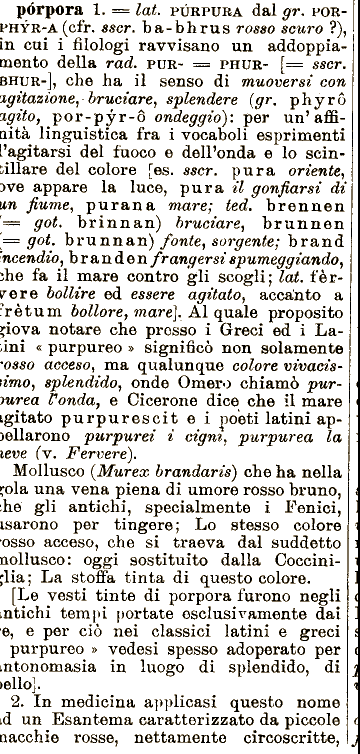 pórpora 1. = lat. PÚRPURA dal gr. POR-
PHÝR-A (cfr. sscr. ba-bhrus rosso scuro ?),
in cui i filologi ravvisano un addoppia-
mento della rad. PUR- = PHUR- [= sscr.
BHUR-], che ha il senso di muoversi con
agitazione, bruciare, splendere (gr. phyrô
agito, por-pýr-ô ondeggio): per un' affi-
nità linguistica fra i vocaboli esprimenti
l'agitarsi del fuoco e dell'onda e lo scin-
tillare del colore [es. sscr. pura oriente,
ove appare la luce, pura il gonfiarsi di
un fiume, purana mare; ted. brennen
(= got. brinnan) bruciare, brunnen
(= got. brunnan) fonte, sorgente; brand
incendio, branden frangersi spumeggiando,
che fa il mare contro gli scogli; lat. fèr-
vere bollire ed essere agitato, accanto a
frètum bollore, mare]. Al quale proposito
giova notare che presso i Greci ed i La-
tini « purpureo » significò non solamente
rosso acceso, ma qualunque colore vivacis-
simo, splendido, onde Omero chiamò pur-
purea l'onda, e Cicerone dice che il mare
agitato purpurescit e i poèti latini ap-
pellarono purpurei i cigni, purpurea la
neve (v. Fervere).
Mollusco (Murex brandaris) che ha nella
gola una vena piena di umore rosso bruno,
che gli antichi, specialmente i Fenici,
usarono per tingere; Lo stesso colore
rosso acceso, che si traeva dal suddetto
mollusco: oggi sostituito dalla Coccini-
glia; La stoffa tinta di questo colore.
[Le vesti tinte di porpora furono negli
antichi tempi portate esclusivamente dai
re, e per ciò nei classici latini e greci
« purpureo » vedesi spesso adoperato per
antonomasia in luogo di splendido, di
bello].
2. In medicina applicasi questo nome
ad un Esantema caratterizzato da piccole
macchie rosse, nettamente circoscritte,